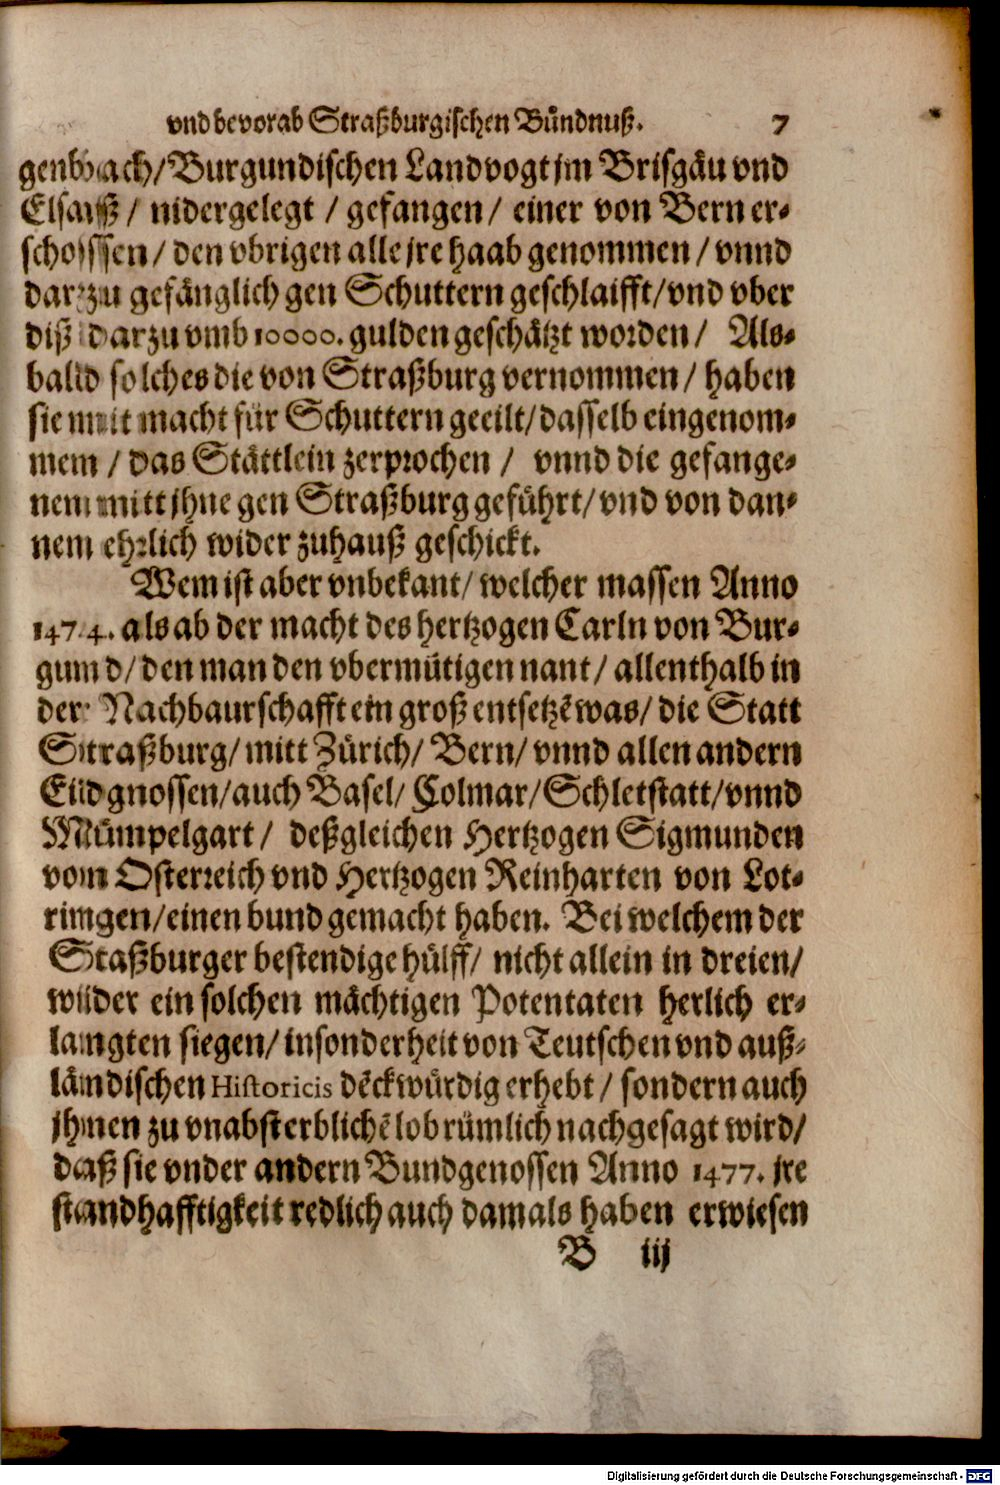 vnd bevorab Straßburgischen Bůndnuß. 7
genbach/ Burgundischen Landvogt jm Brisgäu vnd
Elsaß/ nidergelegt / gefangen/ einer von Bern er-
schossen/ den vbrigen alle jre haab genommen/ vnnd
darzu gefänglich gen Schuttern geschlaifft/ vnd vber
diß darzu vmb 10000. gulden geschätzt worden/ Als-
bald solches die von Straßburg vernommen/ haben
sie mit macht für Schuttern geeilt/ dasselb eingenom-
men / das Stättlein zerprochen / vnnd die gefange-
nen mitt jhne gen Straßburg geführt/ vnd von dan-
nen ehrlich wider zuhauß geschickt.
Wem ist aber vnbekant/ welcher massen Anno
1474. als ab der macht des hertzogen Carln von Bur-
gund/ den man den vbermütigen nant/ allenthalb in
der Nachbaurschafft ein groß entsetzē was/ die Statt
Straßburg/ mitt Zürich/ Bern/ vnnd allen andern
Eidgnossen/ auch Basel/ Colmar/ Schletstatt/ vnnd
Mümpelgart/ deßgleichen Hertzogen Sigmunden
von Osterreich vnd Hertzogen Reinharten von Lot-
ringen/ einen bund gemacht haben. Bei welchem der
Staßburger bestendige hülff/ nicht allein in dreien/
wider ein solchen mächtigen Potentaten herlich er-
langten siegen/ insonderheit von Teutschen vnd auß-
ländischen Historicis dēckwürdig erhebt/ sondern auch
jhnen zu vnabsterblichē lob rümlich nachgesagt wird/
daß sie vnder andern Bundgenossen Anno 1477. jre
standhafftigkeit redlich auch damals haben erwiesen
B iij
Digitalisierung gefördert durch die Deutsche Forschungsgemeinschaft - DFG